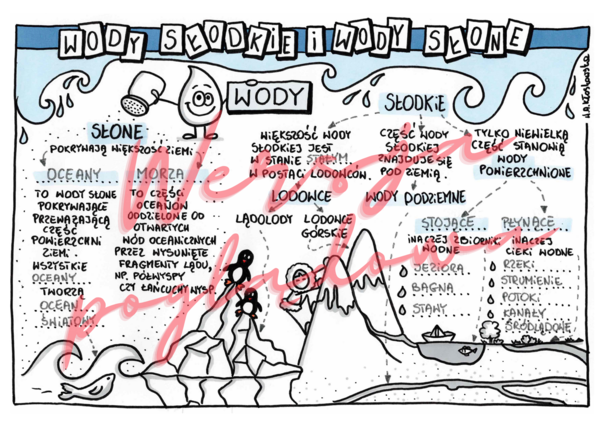 WODY SŁODKIE I WODY SŁONE
WODY
SŁONE
POKRYWAJĄ WIĘKSZOŚĆ ZIEMI
OCEANY
TO WODY SŁONE
POKRYWAJĄCE
PRZEWAŻAJĄCĄ
CZĘŚĆ
POWIERZCHNI
ZIEMI.
WSZYSTKIE
OCEANY
TWORZĄ
OCEAN
ŚWIATOWY.
MORZA
TO CZĘŚCI
OCEANÓW
ODDZIELONE OD
OTWARTYCH
WÓD OCEANICZNYCH
PRZEZ WYSUNIĘTE
FRAGMENTY LĄDU,
NP. PÓŁWYSPY
CZY ŁAŃCUCHY WYSP.
SŁODKIE
WIĘKSZOŚĆ WODY
SŁODKIEJ JEST
W STANIE STAŁYM,
W POSTACI LODOWCÓW.
LODOWCE
LĄDOLODY
LODOWCE
GÓRSKIE
CZĘŚĆ WODY
SŁODKIEJ
ZNAJDUJE SIĘ
POD ZIEMIĄ.
WODY PODZIEMNE
TYLKO NIEWIELKĄ
CZĘŚĆ STANOWIĄ
WODY
POWIERZCHNIOWE
STOJĄCE
INACZEJ ZBIORNIKI
WODNE
JEZIORA
BAGNA
STAWY
PŁYNĄCE
INACZEJ
CIEKI WODNE
RZEKI
STRUMIENIE
POTOKI
KANAŁY
ŚRÓDLĄDOWE
Wersja
poglądowa